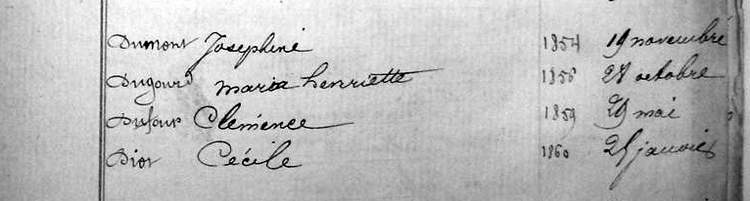 Dumont Joséphine 1854 19 novembre
Dugourd maria henriette 1856 27 octobre
Dufour Clémence 1859 29 mai
Diot Cécile 1860 25 janvier